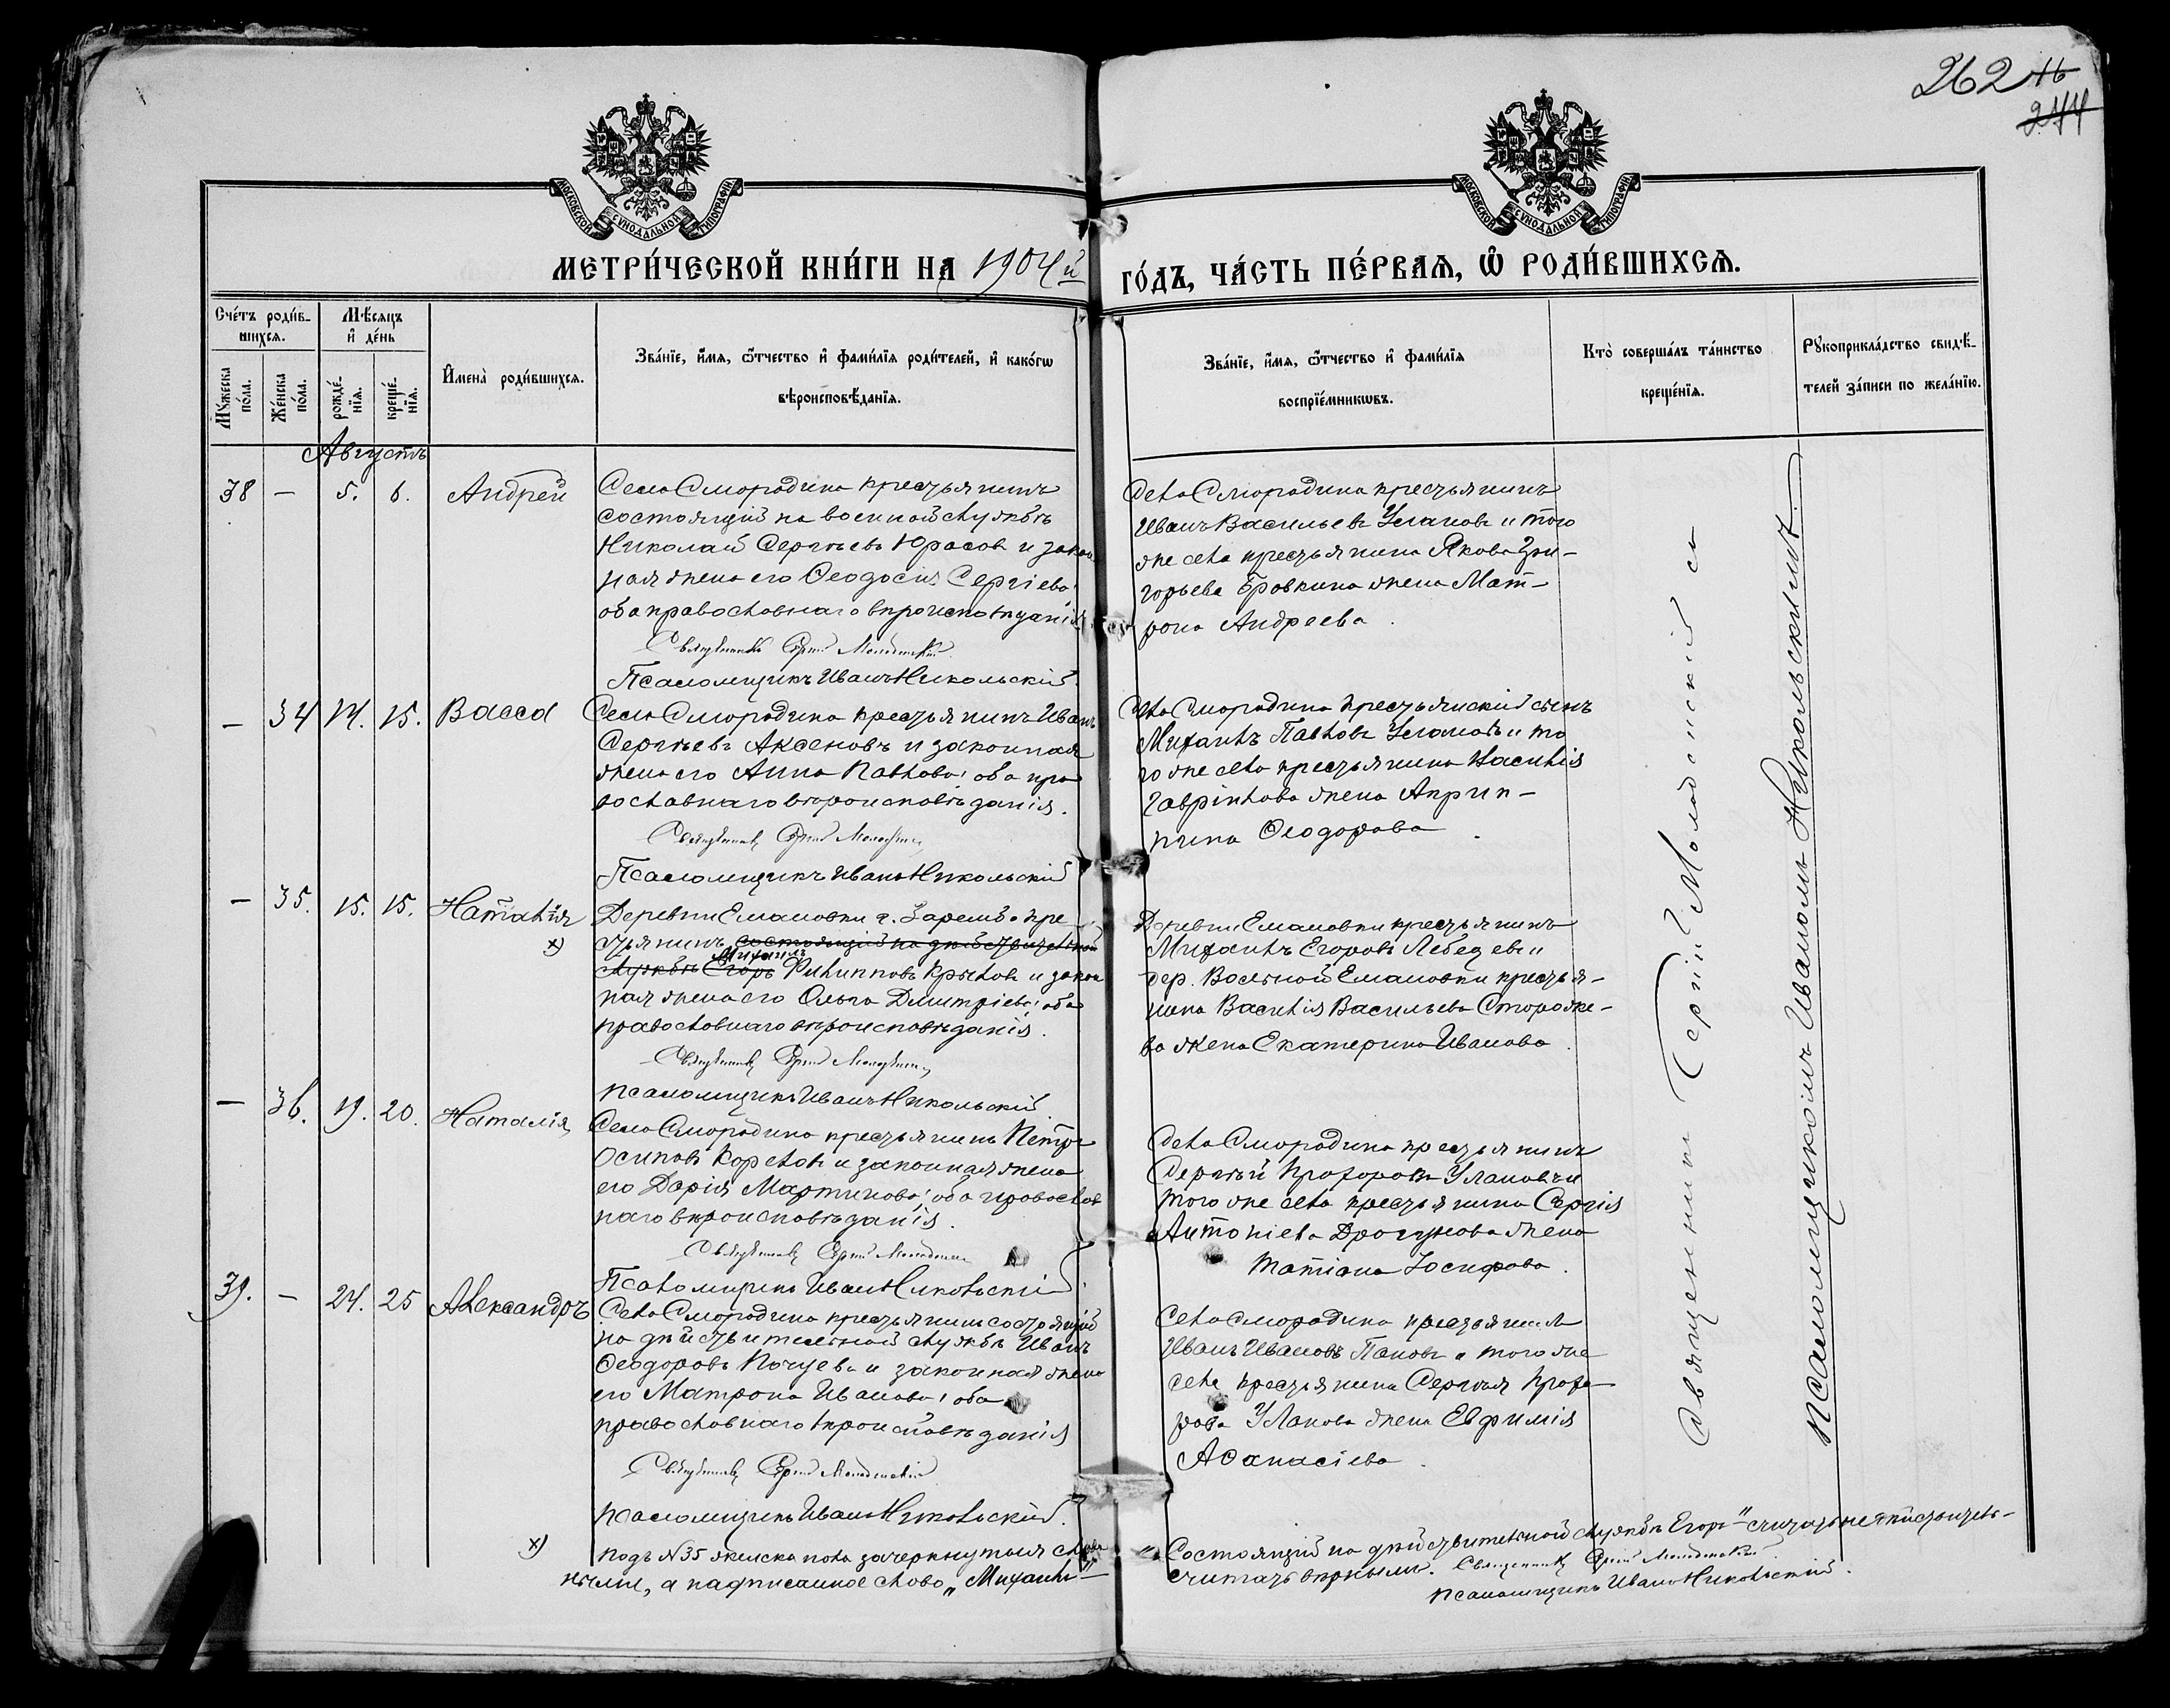 262 16
244
МОСКОВСКОЙ СѴНОДАЛЬНОЙ ТИПОГРАФІИ
МОСКОВСКОЙ СѴНОДАЛЬНОЙ ТИПОГРАФІИ
МЕТРИ́ЧЕСКОЙ КНИ́ГИ НА 1904й ГО́ДЪ, ЧА́СТЬ ПЕ́РВАѦ, Ѡ РОДИ́ВШИХСѦ.
Сче́тъ роди́в-
шихсѧ.
Мꙋжеска по́ла.
Же́нска по́ла.
Мѣ́сѧцъ и де́нь
рожде́-нїѧ.
креще́-нїѧ.
Имена̀ роди́вшихсѧ.
Зва́нїе, и́мѧ, ѻ́тчество и фами́лїѧ роди́телей, и како́гѡ
вѣроисповѣ́данїѧ.
Зва́нїе, и́мѧ, ѻ́тчество и фами́лїѧ
воспрїе́мникѡвъ.
Кто̀ соверша́лъ та́инство
креще́нїѧ.
Рꙋкоприкла́дство свидѣ́-
телей за́писи по жела́нїю.
Августъ
38 — 5. 6. Андрей
Села Смородина крестьянинъ
состоящій на военной службѣ
Николай Сергѣевъ Юрасовъ и закон
ная жена его Ѳеодосія Сергіева
оба православнаго вѣроисповѣданія
Священникъ Сергій Молоденскій
Псаломщикъ Иванъ Никольскій.
Села Смородина крестьянинъ
Иванъ Васильевъ Улановъ и того
же села крестьянина Якова Гри-
горьева Бровкина жена Мат-
рона Андреева.
— 34 14. 15. Васса
Села Смородина крестьянинъ Иванъ
Сергѣевъ Аксеновъ и законная
жена его Анна Павлова; оба пра
вославнаго вѣроисповѣданія.
Священникъ Сергій Молоденскій
Псаломщикъ Иванъ Никольскій
Села Смородина крестьянскій сынъ
Михаилъ Павловъ Улановъ и то
го же села крестьянина Василія
Гаврілова жена Агрип-
пина Ѳеодорова.
— 35. 15. 15. Наталія
х)
Деревни Емановки г. Зарембо кре
стьянинъ состоящій на дѣйствительной
Михаилъ
службѣ Егоръ Филипповъ Крыловъ и закон
ная жена его Ольга Димитріева; оба
православнаго вѣроисповѣданія.
Священникъ Сергій Молоденскій
Псаломщикъ Иванъ Никольскій.
Деревни Емановки крестьянинъ
Михаилъ Егоровъ Лебедевъ и
дер. Вольной Емановки крестья-
нина Василія Васильева Стороже-
ва жена Екатерина Иванова.
— 36. 19. 20. Наталія
Села Смородина крестьянинъ Петръ
Осиповъ Корсловъ и законная жена
его Дарія Мартинова; оба православ
наго вѣроисповѣданія.
Священникъ Сергій Молоденскій
Псаломщикъ Иванъ Никольскій.
Села Смородина крестьянинъ
Сергѣй Прохоровъ Улановъ и
того же села крестьянина Сергія
Антоніева Драгунова жена
Татіана Іосифова.
39. — 24. 25 Александръ
Села Смородина крестьянинъ состоящій
на дѣйствительной службѣ Иванъ
Ѳеодоровъ Почуевъ и законная жена
его Матрона Иванова; оба
православнаго вѣроисповѣданія
Священникъ Сергій Молоденскій
Псаломщикъ Иванъ Никольскій.
Села Смородина крестьянинъ
Иванъ Ивановъ Пановъ и того же
села крестьянина Сергѣя Прохо
рова Уланова жена Евфимія
Аѳанасіева.
Священникъ Сергій Молоденскій съ
псаломщикомъ Иваномъ Никольскимъ.
х) Подъ №35 женска пола зачеркнутыя слова „Состоящій на дѣйствительной службѣ Егоръ“ считать недѣйствитель-
ными, а надписанное слово „Михаилъ“ считать вѣрнымъ. Священникъ Сергій Молоденскій
Псаломщикъ Иванъ Никольскій.